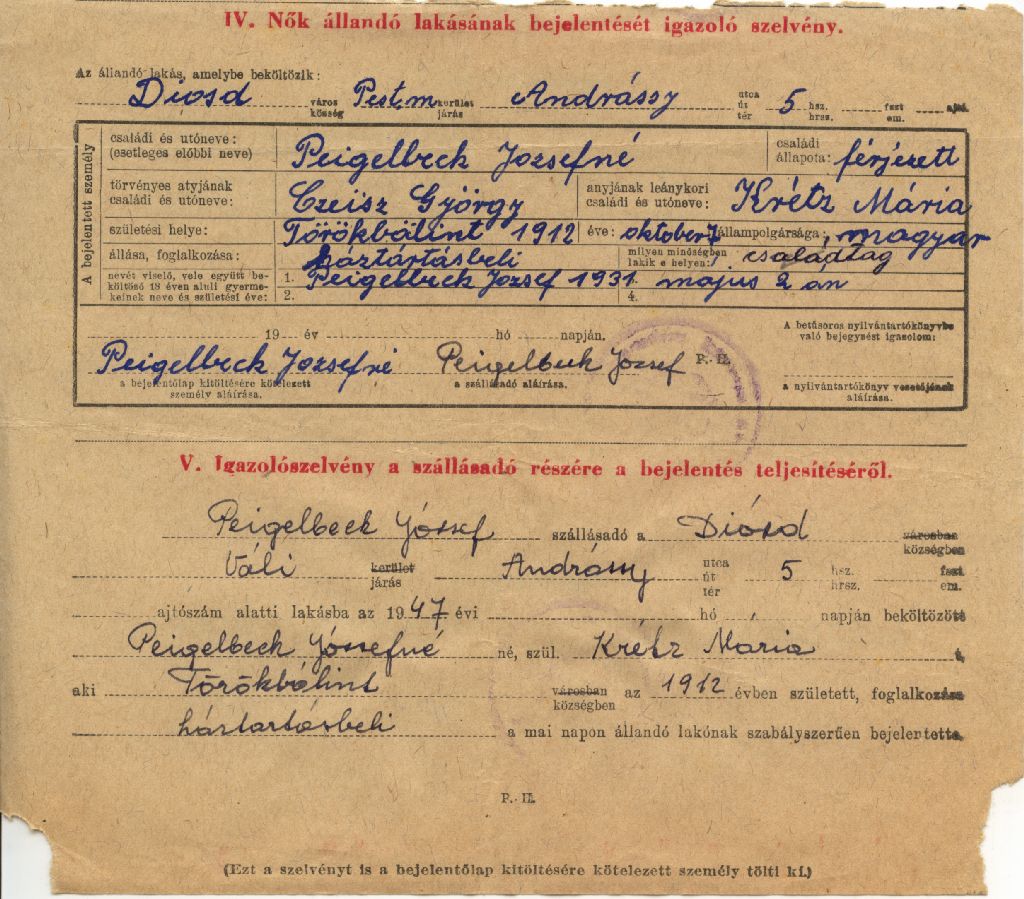 IV. Nők állandó lakásának bejelentését igazoló szelvény.
Az állandó lakás, amelybe beköltözik:
Diosd város község Pest.m kerület járás Andrássy utca út tér 5 hsz. hrsz. fszt em. ajtó
A bejelentett személy
családi és utóneve: (esetleges előbbi neve) Peigelbeck Jozsefné családi állapota: férjezett
törvényes atyjának családi és utóneve: Czeisz György anyjának leánykori családi és utóneve: Krétz Mária
születési helye: Törökbálint 1912 éve: oktober 7 állampolgársága: magyar
állása, foglalkozása: háztártásbeli milyen minőségben lakik e helyen: családtag
nevét viselő, vele együtt beköltöző 18 éven aluli gyermekeinek neve és születési éve: 1. Peigelbeck Jozsef 1931 3. május 2 án
2. 4.
19 év hó napján.
A betűsoros nyilvántartókönyvbe való bejegyzést igazolom:
Peigelbeck Jozsefné Peigelbeck Jozsef P. H.
a bejelentőlap kitöltésére kötelezett személy aláírása. a szállásadó aláírása. a nyilvántartókönyv vezetőjének aláírása.
V. Igazolószelvény a szállásadó részére a bejelentés teljesítéséről.
Peigelbeck József szállásadó a Diósd városban községben
Váli kerület járás Andrássy utca út tér 5 hsz. hrsz. fszt. em.
ajtószám alatti lakásba az 1947 évi hó napján beköltözött
Peigelbeck Józsefné né, szül. Krétz Maria
aki Törökbálint városban községben az 1912 évben született, foglalkozása
háztartásbeli a mai napon állandó lakónak szabályszerűen bejelentette.
P. H.
(Ezt a szelvényt is a bejelentőlap kitöltésére kötelezett személy tölti ki.)